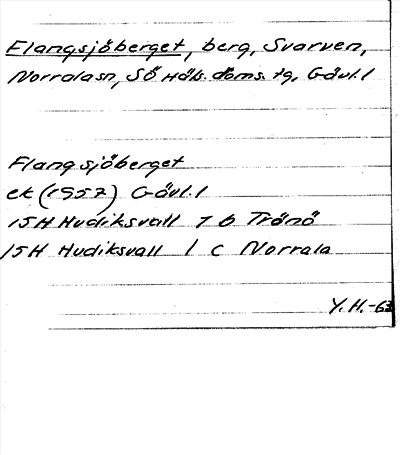 Flangsjöberget, berg, Svarven,
Norrala sn, Sö Häls. doms. tg, Gävl. l
Flangsjöberget
ek (1957) Gävl. l
15H Hudiksvall 7 b Trönö
15H Hudiksvall 1 c Norrala
Y. H.-63